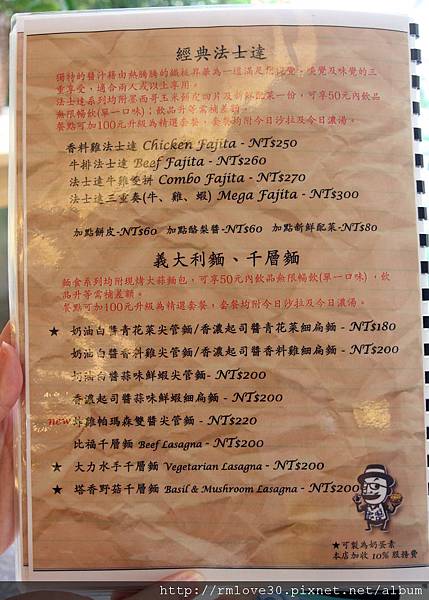 經典法士達
獨特的醬汁藉由熱騰騰的鐵板昇華為一道滿足視覺、嗅覺及味覺的三
重享受，適合兩人或以上享用。
法士達系列均附墨西哥玉米餅皮四片及新鮮配菜一份，可享50元內飲品
無限暢飲(單一口味)；飲品升等需補差額。
餐點可加100元升級為精選套餐，套餐均附今日沙拉及今日濃湯。
香料雞法士達 Chicken Fajita - NT$250
牛排法士達 Beef Fajita - NT$260
法士達牛雞雙拼 Combo Fajita - NT$270
法士達三重奏(牛、雞、蝦) Mega Fajita - NT$300
加點餅皮-NT$60 加點酪梨醬-NT$60 加點新鮮配菜-NT$80
義大利麵、千層麵
麵食系列均附現烤大蒜麵包，可享50元內飲品無限暢飲(單一口味)，飲
品升等需補差額。
餐點可加100元升級為精選套餐，套餐均附今日沙拉及今日濃湯。
★ 奶油白醬青花菜尖管麵/香濃起司醬青花菜細扁麵 - NT$180
奶油白醬香料雞尖管麵/香濃起司醬香料雞細扁麵 - NT$200
奶油白醬蒜味鮮蝦尖管麵- NT$200
香濃起司醬蒜味鮮蝦細扁麵 - NT$200
new 炸雞帕瑪森雙醬尖管麵 - NT$220
比福千層麵 Beef Lasagna - NT$200
★ 大力水手千層麵 Vegetarian Lasagna - NT$200
★ 塔香野菇千層麵 Basil & Mushroom Lasagna - NT$200
★可製為奶蛋素
本店加收 10% 服務費
http://rmlove30.pixnet.net/album